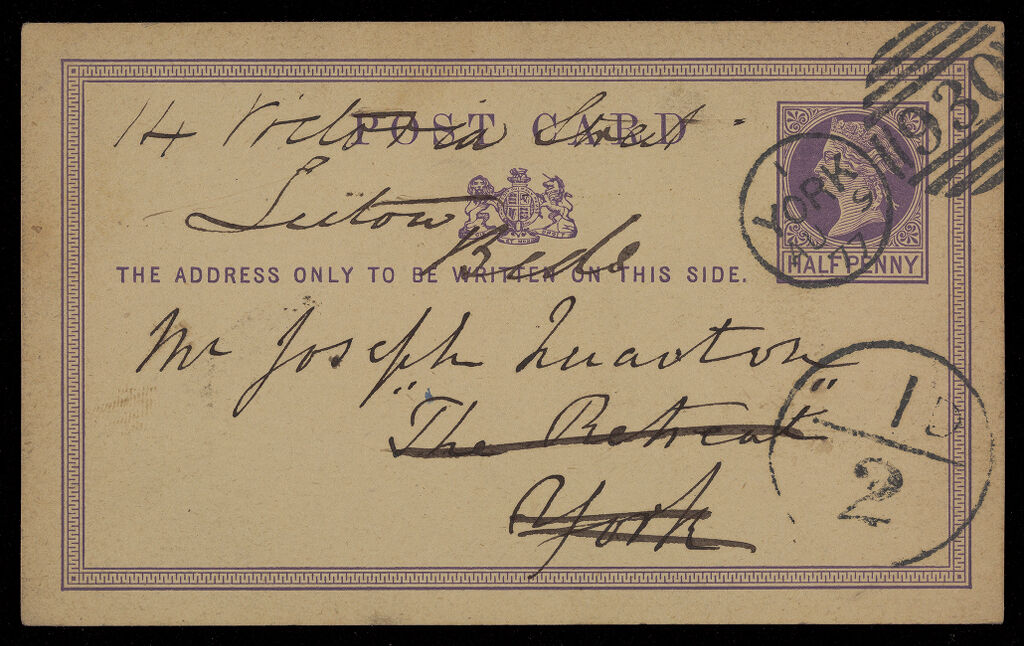 POST CARD
14 Victoria Street
Luton
Beds
THE ADDRESS ONLY TO BE WRITTEN ON THIS SIDE.
Mr Joseph Quarton
"The Retreat"
York
930
YORK
AU 9
77
HALFPENNY
1 D
2